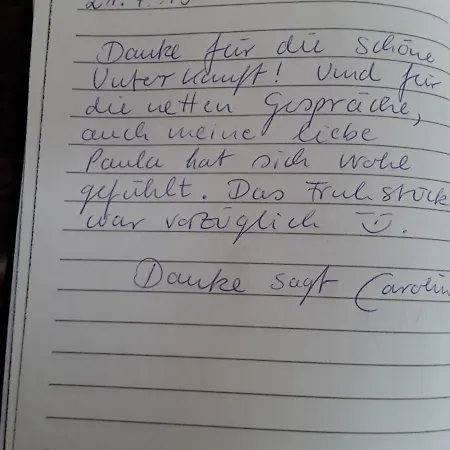 Danke für die schöne
Unterkunft! Und für
die netten Gespräche,
auch meine liebe
Paula hat sich wohl
gefühlt. Das Frühstück
war vorzüglich
Danke sagt Carolin